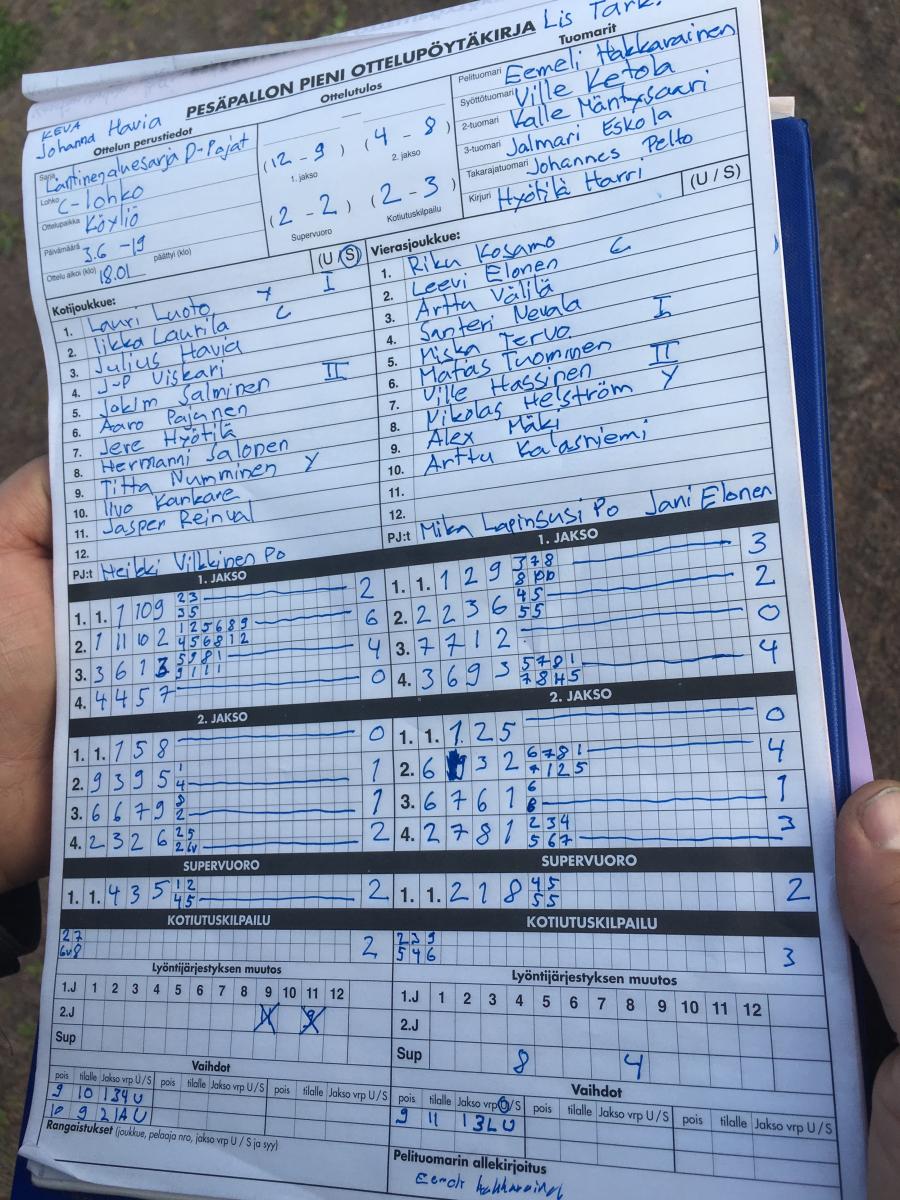 PESÄPALLON PIENI OTTELUPÖYTÄKIRJA Lis Tark.
KEVA
Johanna Havia
Ottelun perustiedot
Sarja Läntinen aluesarja D-Pojat
Lohko C-lohko
Ottelupaikka Köyliö
Päivämäärä 3.6 -19
Ottelu alkoi (klo) 18.01 päättyi (klo)
Ottelutulos
(12 - 9) (4 - 8)
1. jakso 2. jakso
(2 - 2) (2 - 3)
Supervuoro Kotiutuskilpailu
Tuomarit
Pelituomari Eemeli Hakkarainen
Syöttötuomari Ville Ketola
2-tuomari Kalle Mäntysaari
3-tuomari Jalmari Eskola
Takarajatuomari Johannes Pelto
Kirjuri Hyötilä Harri
Kotijoukkue: (U / S)
1. Lauri Luoto Y I
2. Iikka Laurila C
3. Julius Havia
4. J-P Viskari
5. Jokim Salminen II
6. Aaro Pajunen
7. Jere Hyötilä
8. Hermanni Salonen
9. Titta Numminen Y
10. Iivo Kankare
11. Jasper Reinval
12.
PJ:t Heikki Vilkkinen Po
Vierasjoukkue: (U / S)
1. Riku Kosamo C
2. Leevi Elonen
3. Arttu Välilä
4. Santeri Nevala I
5. Miska Tervo
6. Matias Tuominen II
7. Ville Hassinen Y
8. Nikolas Helström
9. Alex Mäki
10. Arttu Kalasniemi
11.
12.
PJ:t Mika Lapinsusi Po Jani Elonen
1. JAKSO
1. 1. 1 10 9 2 3 2
3 5
2. 1 11 10 2 1 2 5 6 8 9 6
4 5 6 8 1 2
3. 3 6 1 3 5 9 8 1 4
9 1 1 1
4. 4 4 5 7 0
1. JAKSO
1. 1. 1 2 9 3 7 8 3
2. 2 2 3 6 4 5 2
5 5
3. 7 7 1 2 0
4. 3 6 9 3 5 7 8 1 4
2. JAKSO
1. 1. 1 5 8 0
2. 9 3 9 5 1 1
4
3. 6 6 7 9 8 1
2
4. 2 3 2 6 2 5 2
2. JAKSO
1. 1. 1 2 5 0
2. 6 3 2 6 7 8 1 4
7 1 2 5
3. 6 7 6 1 6 1
8
4. 2 7 8 1 2 3 4 3
5 6 7
SUPERVUORO
1. 1. 4 3 5 1 2 2
4 5
SUPERVUORO
1. 1. 2 1 8 4 5 2
5 5
KOTIUTUSKILPAILU
2 7 2
KOTIUTUSKILPAILU
2 3 9 3
5 4 6
Lyöntijärjestyksen muutos
1.J 1 2 3 4 5 6 7 8 9 10 11 12
2.J
Sup
Lyöntijärjestyksen muutos
1.J 1 2 3 4 5 6 7 8 9 10 11 12
2.J
Sup 8 4
Vaihdot
pois tilalle Jakso vrp U / S pois tilalle Jakso vrp U / S pois tilalle Jakso vrp U / S
9 10 1 3 4 U
10 9 2 1A U
Vaihdot
pois tilalle Jakso vrp U/S pois tilalle Jakso vrp U / S pois tilalle Jakso vrp U / S
9 11 1 3L U
Rangaistukset (joukkue, pelaaja nro, jakso vrp U / S ja syy)
Pelituomarin allekirjoitus